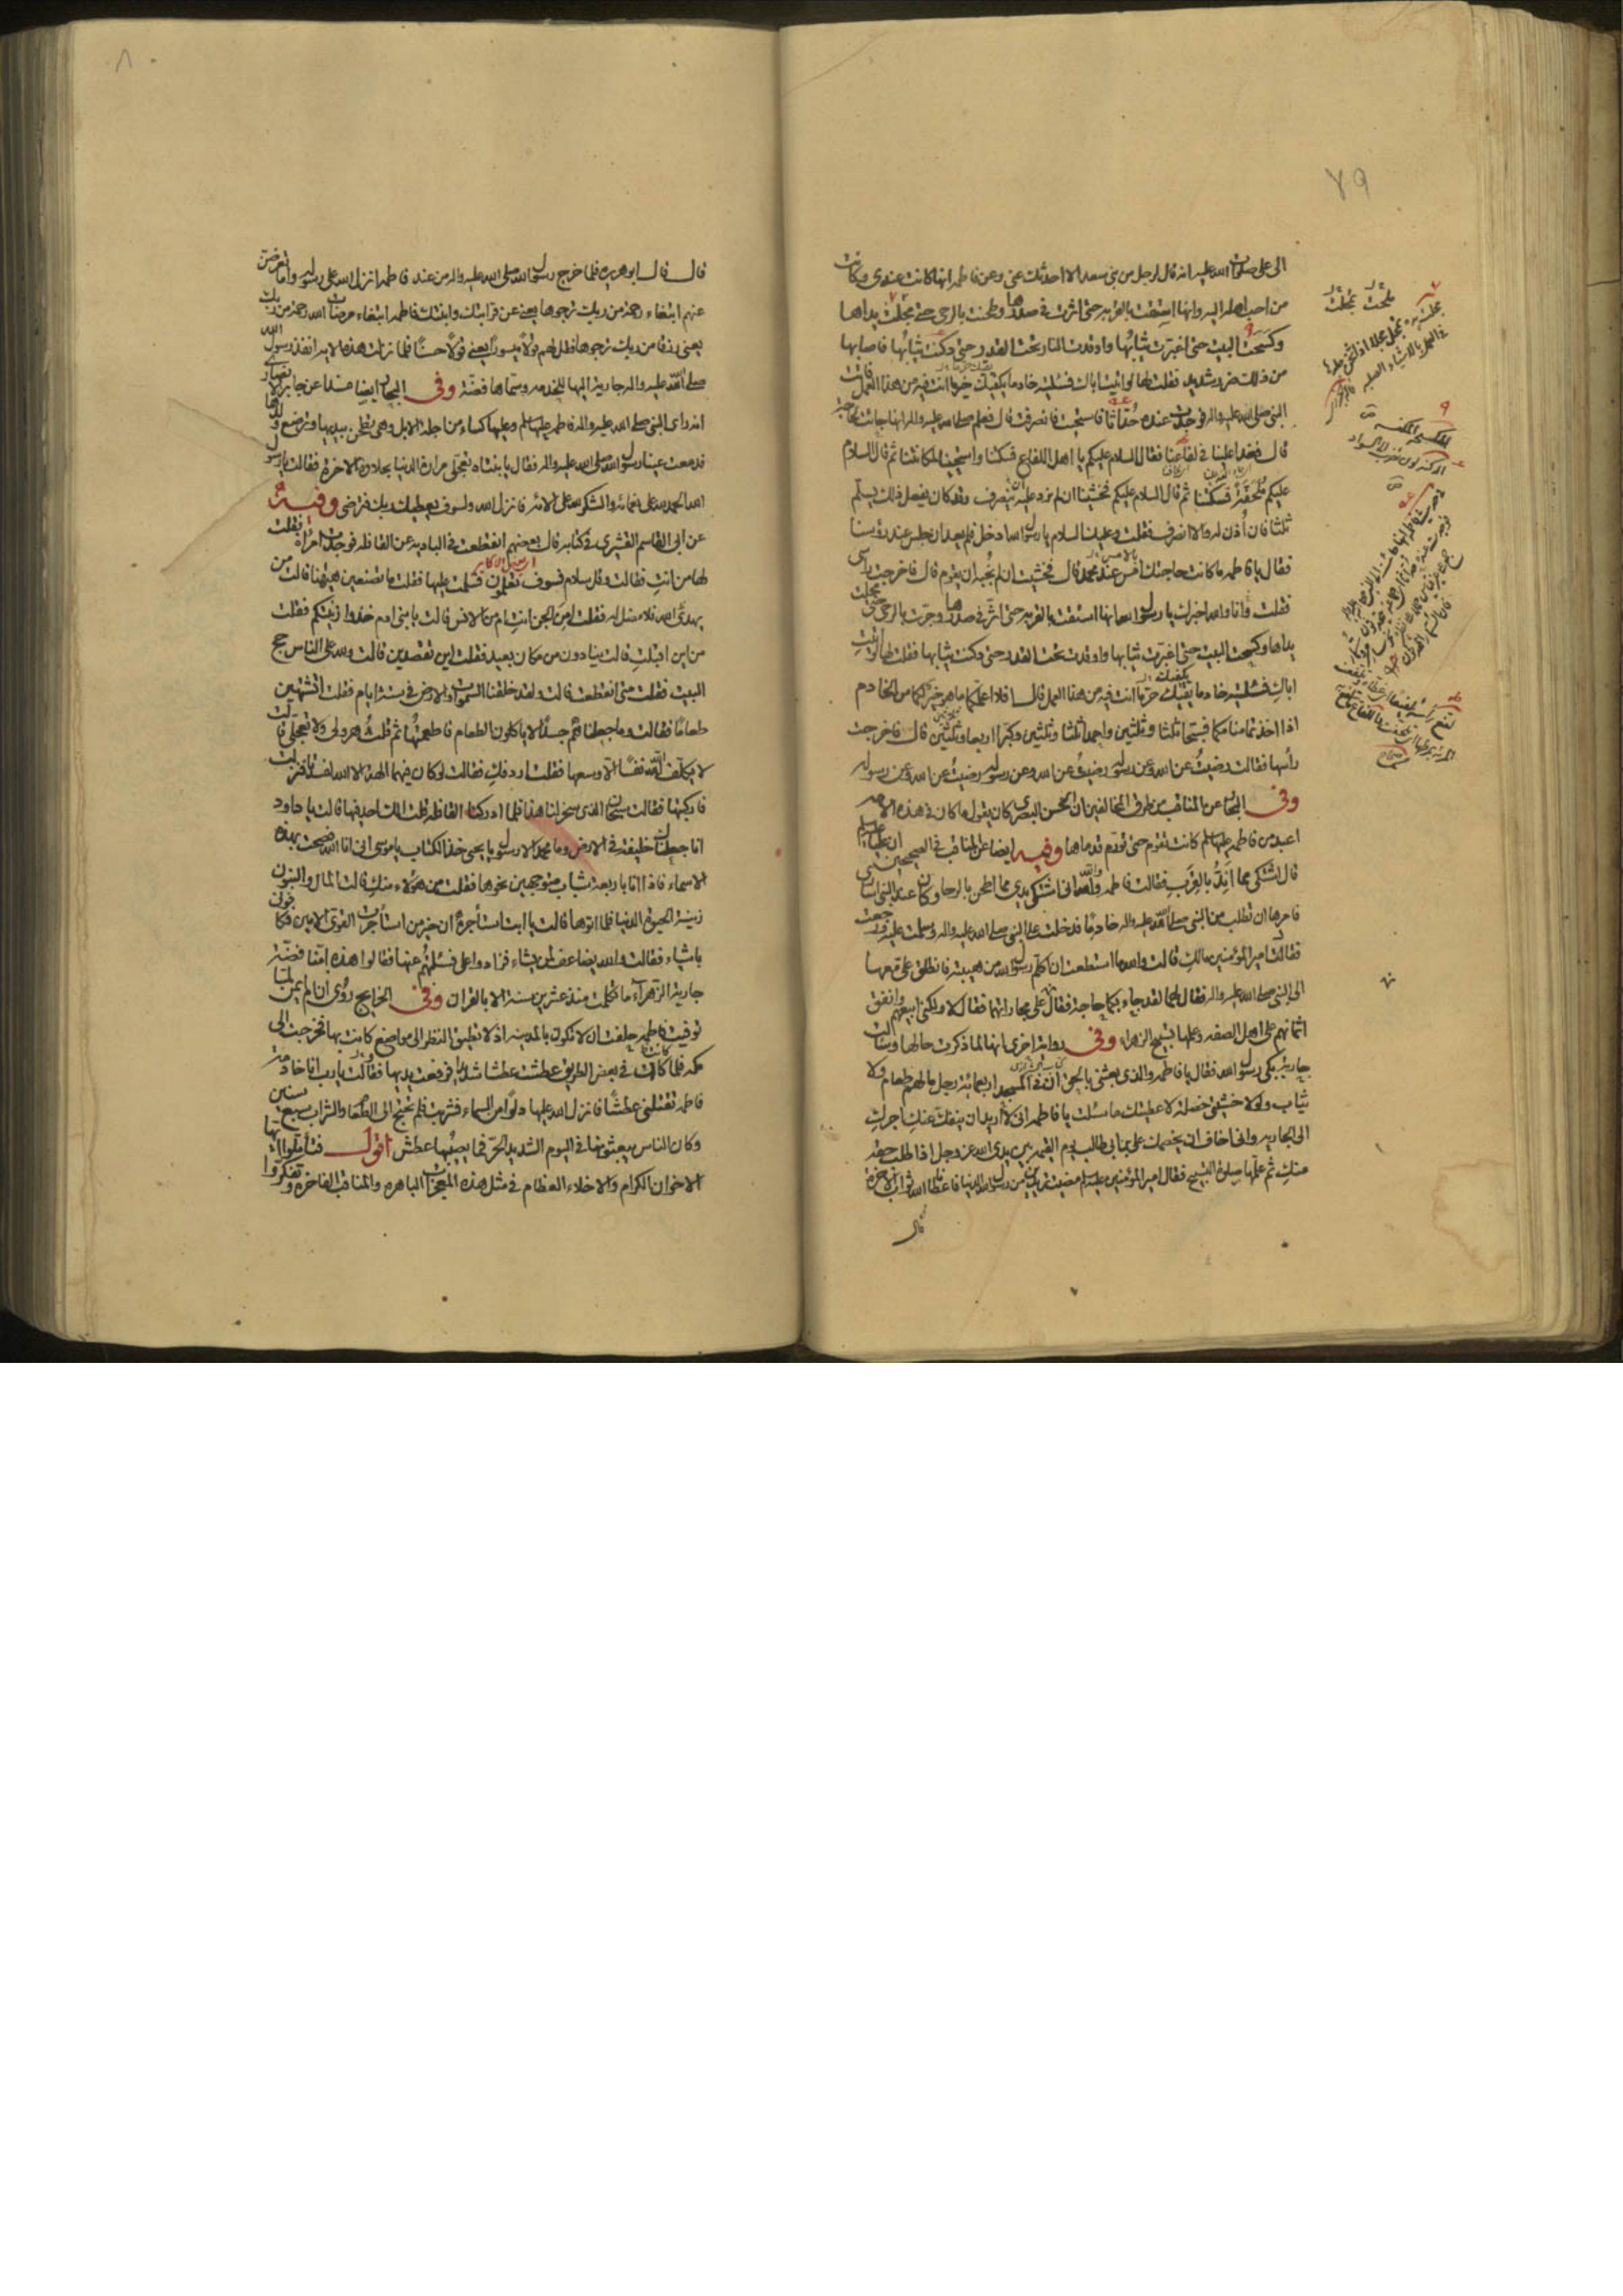 ٧٩
الى على صلوات الله عليه انه قال لرجل من بنى سعد الا احدثك عنى وعن فاطمه انها كانت عندى وكانت
من احب اهله اليه وانها استقت بالقربه حتى اثرت فى صدرها وطحنت بالرحى حتى مجلت يداها
وكسحت البيت حتى اغبرت ثيابها واوقدت النار تحت القدر حتى دكنت ثيابها فاصابها
من ذلك ضر شديد فقلت لها لو اتيت اباك فسئلته خادما يكفيك حر ما انت فيه من هذا العمل فاتت
النبى صلى الله عليه واله فوجدت عنده حُدّاثا فاستحيت فانصرفت قال فعلم صلى الله عليه واله انها جاءت لحاجة
قال فغدا علينا فى لفاعنا فقال السلام عليكم يا اهل اللفاع فسكتنا واستحيينا لمكاننا ثم قال السلام
عليكم فسكتنا ثم قال السلام عليكم فخشينا ان لم نرد عليه ان ينصرف وقد كان يفعل ذلك يسلم
ثلثا فان أُذن له والا انصرف فقلت وعليك السلام يا رسول الله ادخل فلم يعد ان جلس عند رؤسنا
فقال يا فاطمه ما كانت حاجتك امس عند محمد قال فخشيت ان لم نُجبه ان يقوم قال فاخرجت راسى
فقلت انا والله اخبرك يا رسول الله انها استقت بالقربه حتى اثّر فى صدرها وجرّت بالرحى حتى مجلت
يداها وكسحت البيت حتى اغبرّت ثيابها واوقدت تحت القدر حتى دكنت ثيابها فقلت لها لو اتيتِ
اباكِ فسئلتيه خادما يكفيك حرّ ما انت فيه من هذا العمل قال افلا اعلّمكما ما هو خير لكما من الخادم
اذا اخذتما منامكما فسبّحا ثلثا وثلثين واحمدا ثلثا وثلثين وكبّرا اربعا وثلثين قال فاخرجت
رأسها فقالت رضيتُ عن الله وعن رسوله رضيتُ عن الله وعن رسوله رضيتُ عن الله وعن رسوله
وفى البحار عن المناقب من طرق المخالفين ان الحسن البصرى كان يقول ما كان فى هذه الامه
اعبد من فاطمه عليها سلم كانت تقوم حتى تورّم قدماها وفيه ايضا عن المناقب فى الصحيحين ان عليا عليه سلم
قال اشتكى مما اندُّ بالقِرب فقالت فاطمه والله انى اشتكى يدى مما اطحن بالرحا وكان عند النبى اسارى
فامرها ان تطلب من النبى صلى الله عليه واله خادما فدخلت على النبى صلى الله عليه واله وسلمت عليه ورجعت
فقال امير المؤمنين مالكِ قالت والله ما استطعت ان اكلم رسول الله من هيبته فانطلق على معها
الى النبى صلى الله عليه واله فقال لهما لقد جاء بكما حاجة فقال على مجاراتهما فقال لا ولكنى ابيعهم وانفق
اثمانهم على اهل الصفه وعلمها تسبيح الزهراء وفى رواية اخرى انها لما ذكرت حالها وسالت
جارية بكى رسول الله فقال يا فاطمه والذى بعثنى بالحق ان فى المسجد اربعمائة رجل ما لهم طعام ولا
ثياب ولولا خشيتى خصلة لاعطيتك ما سئلت يا فاطمه انى لا اريد ان ينفك عنكِ اجركِ
الى الجاريه وانى اخاف ان يخصمك على بن ابى طالب يوم القيمه بين يدى الله عز وجل اذا طلب حقه
منكِ ثم علّمها صلوة التسبيح فقال امير المؤمنين عليه سلم مضيت تريدين من رسول الله الدنيا فاعطانا الله ثواب الاخرة
قال
٨
قال قال ابو هريره فلما خرج رسول الله صلى الله عليه واله من عند فاطمه انزل الله على رسوله واما تعرضنّ
عنهم ابتغاء رحمة من ربك ترجوها يعنى عن قرابتك وابنتك فاطمه ابتغاء مرضات الله رحمة من ربك
يعنى رزقا من ربك ترجوها فقل لهم قولا ميسورا يعنى قولا حسنا فلما نزلت هذه الايه انفذ رسول الله
صلى الله عليه واله جارية اليها للخدمه وسمّاها فضّه وفى البحار ايضا مسندا عن جابر الانصارى
انه راى النبى صلى الله عليه واله فاطمه عليها سلم وعليها كساء من اجلة الابل وهى تطحن بيديها وترضع ولدها
فدمعت عينا رسول الله صلى الله عليه واله فقال يا بنتاه تعجّلى مرارة الدنيا بحلاوة الاخرة فقالت يا رسول
الله الحمد لله على نعمائه والشكر لله على آلائه فانزل الله ولسوف يعطيك ربك فترضى وفيه
عن ابى القاسم القشيرى فى كتابه قال بعضهم انقطعت فى الباديه عن القافله فوجدت امراة فقلت
لها من انتِ فقالت وقل سلام فسوف تعلمون فسلمت عليها فقلت ما تصنعين هيهنا قالت من
يهدى الله فلا مضل له فقلت امن الجن انتِ ام من الانس قالت يا بنى ادم خذوا زينتكم فقلت
من اين اقبلتِ قالت ينادون من مكان بعيد فقلت اين تقصدين قالت ولله على الناس حج
البيت فقلت متى انقطعت قالت ولقد خلقنا السموات والارض فى ستة ايام فقلت اتشتهين
طعاما فقالت وما جعلناهم جسدا لا ياكلون الطعام فاطعمتُها ثم قلت هرولى ولا تعجّلى قالت
لا يكلّف الله نفسا الا وسعها فقلت اردفكِ فقالت لو كان فيهما الهة الا الله لفسدتا فنزلت
فاركبتها فقالت سبحان الذى سخر لنا هذا فلما ادركنا القافله قلت الك احد فيها قالت يا داود
انا جعلناك خليفة فى الارض وما محمد الا رسول يا يحيى خذ الكتاب يا موسى انى انا الله فصحت بهذه
الاسماء فاذا انا باربعة شباب متوجهين نحوها فقلت من هؤلاء منكِ قالت المال والبنون
زينة الحيوة الدنيا فلما اتوها قالت يا ابت استأجره ان خير من استأجرت القوى الامين فكافونى
باشياء فقالت والله يضاعف لمن يشاء فزادوا على فسئلتهم عنها فقالوا هذه امّنا فضّة
جارية الزهرآء ما تكلمت منذ عشرين سنة الا بالقران وفى الخرايج روى ان ام ايمن لمّا
توفيت فاطمه حلفت ان لا تكون بالمدينه اذ لا تطيق النظر الى مواضع كانت بها فخرجت الى
مكه فلما كانت فى بعض الطريق عطشت عطشا شديدا فرفعت يديها فقالت يا رب انا خادمة
فاطمه تقتلنى عطشًا فانزل الله عليها دلوا من السماء فشربت فلم تحتج الى الطعام والشراب سبع سنين
وكان الناس يبعثونها فى اليوم الشديد الحرّ فما يصيبُها عطش اقول فتاملوا ايها
الاخوان الكرام والاخلاء العظام فى مثل هذه المعجزات الباهره والمناقب الفاخره وتفكّروا